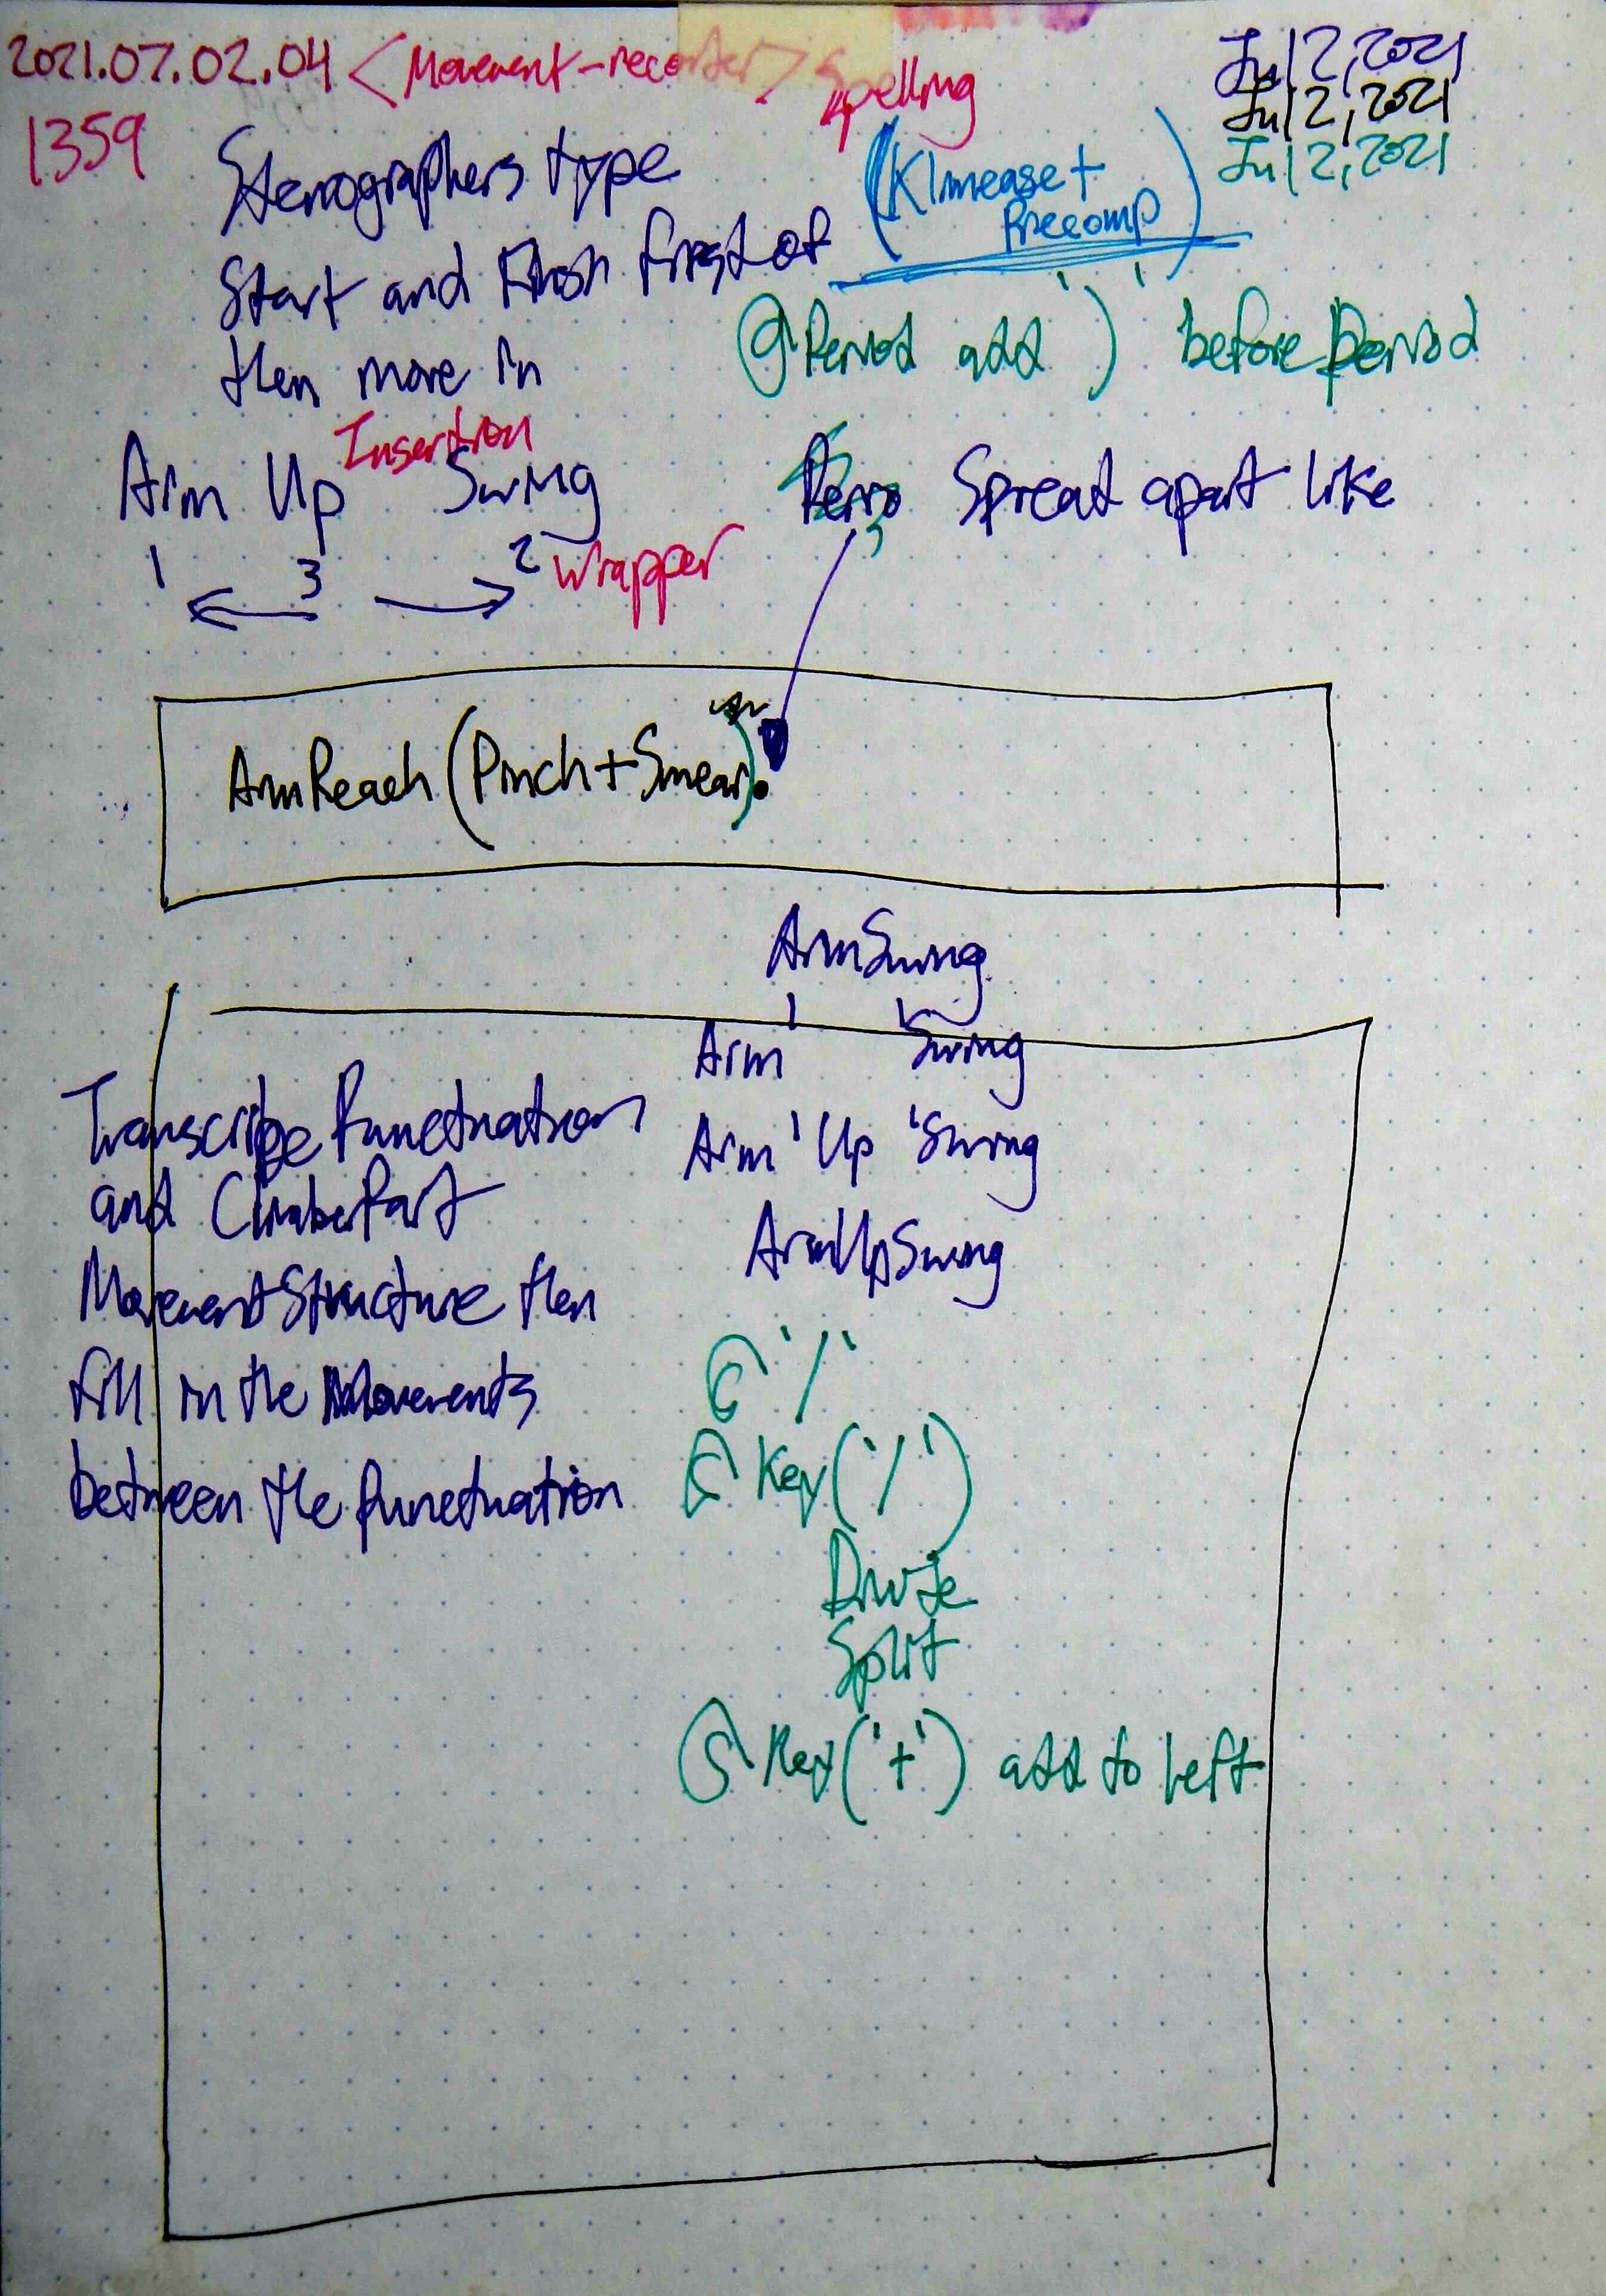 2021.07.02.04 <Movement-recorder> Spelling
1359
Jul 2, 2021
Jul 2, 2021
Jul 2, 2021
Stenographers type
Start and Finish first of
then more in
(Klmease+
Precomp)
Period add ')' before period
Arm Up Insertion Swing
1 3 2 Wrapper
Spread apart like
ArmReach(Pinch+Smear).
ArmSwing
Arm Swing
Arm 'Up 'Swing
ArmUpSwing
Transcribe Punctuation
and ClimberPart
MovementStructure then
fill in the Movements
between the punctuation
'/'
Key('/')
Divide
Split
Key('+') add to left